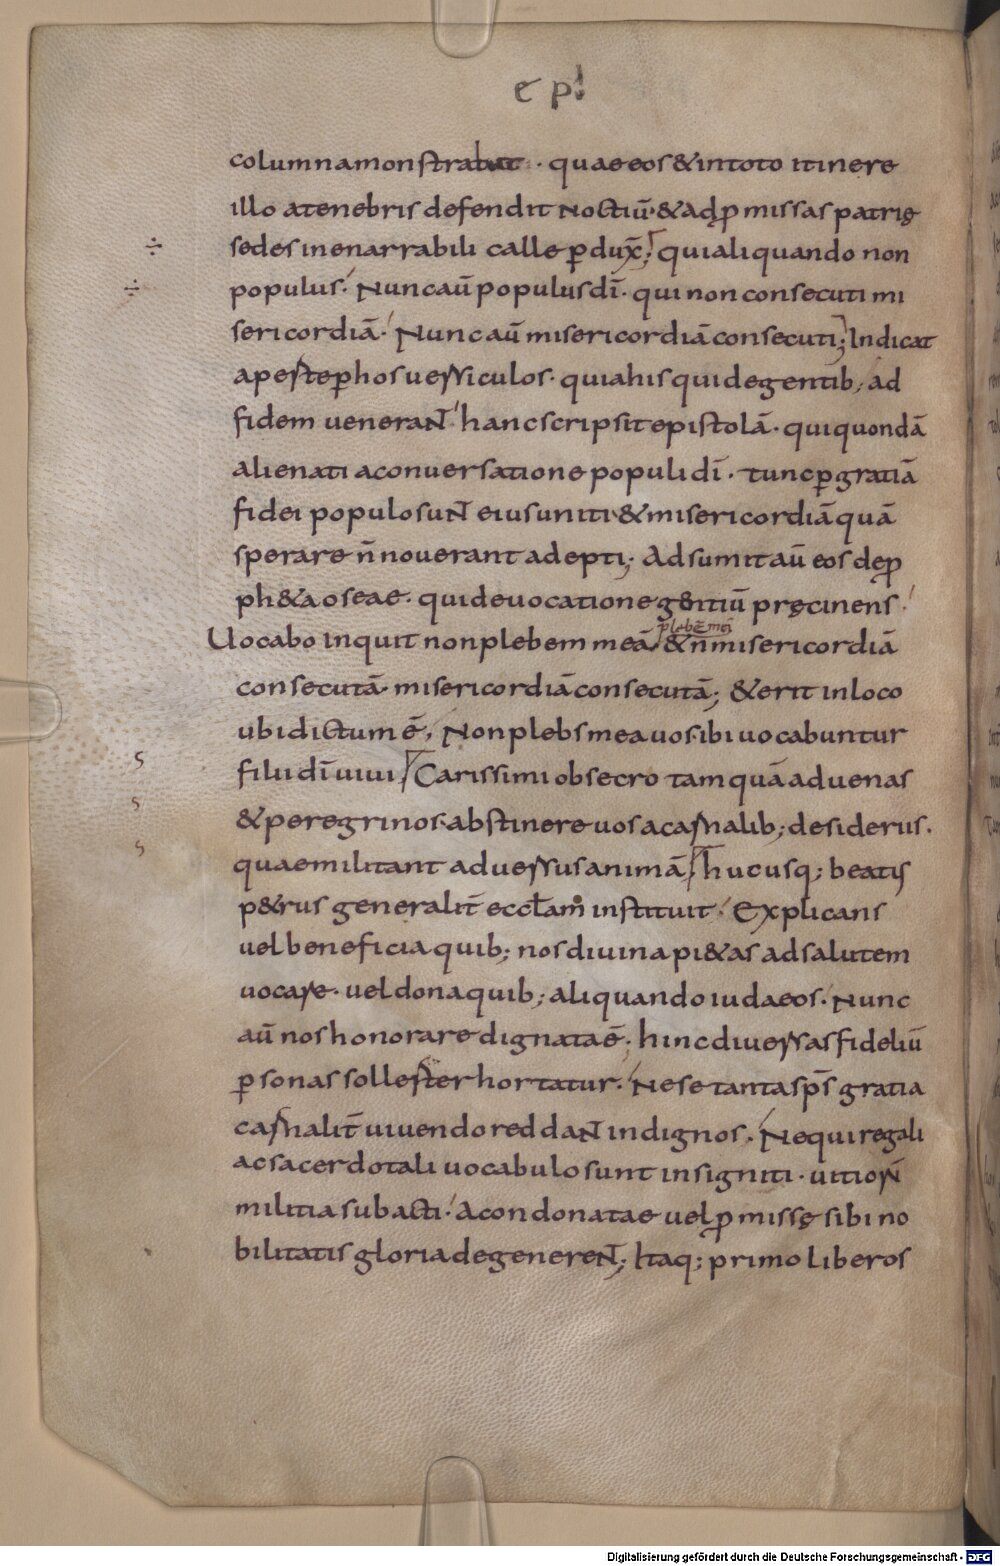 epl
columna monstrabat · quae eos & in toto itinere
illo a tenebris defendit noctiū · & ad ꝓmissas patrię
sedes inenarrabili calle ꝑdux̄; qui aliquando non
populus · Nunc aū populus dī · qui non consecuti mi
sericordiā · Nunc aū misericordiā consecuti; Indicat
apeste ꝑ hos uersiculos · quia his qui de gentib; ad
fidem uenerant hanc scripsit epistolā · qui quondā
alienati a conuersatione populi dī · tunc ꝑ gratiā
fidei populo sunt eius uniti · & misericordiā quā
sperare n̄ nouerant adepti; Adsumit aū eos de ꝓ
ph&a oseae · qui de uocatione gentiū pręcinens
plebē meā
Uocabo inquit non plebem meā & n̄ misericordiā
consecutā · misericordiā consecutā; & erit in loco
ubi dictum ē, Non plebs mea uos ibi uocabuntur
filii dī uiui, Carissimi obsecro tamquā aduenas
& peregrinos abstinere uos a carnalib; desideriis ·
quae militant aduersus animā, hucusq; beatus
p&rus generalit̄ ecclam̄ instituit · Explicans
uel beneficia quib; nos diuina pi&as ad salutem
uocare · uel dona quib; aliquando iudaeos · Nunc
aū nos honorare dignata ē; hinc diuersas fideliū
ꝑsonas sollester hortatur · Ne se tanta sp̄s gratia
carnalit̄ uiuendo reddant indignos · Ne qui regali
ac sacerdotali uocabulo sunt insigniti · uitior̄
militia subacti · A condonatae uel ꝓmissę sibi no
bilitatis gloria degenerent; Itaq; primo liberos
Digitalisierung gefördert durch die Deutsche Forschungsgemeinschaft - DFG